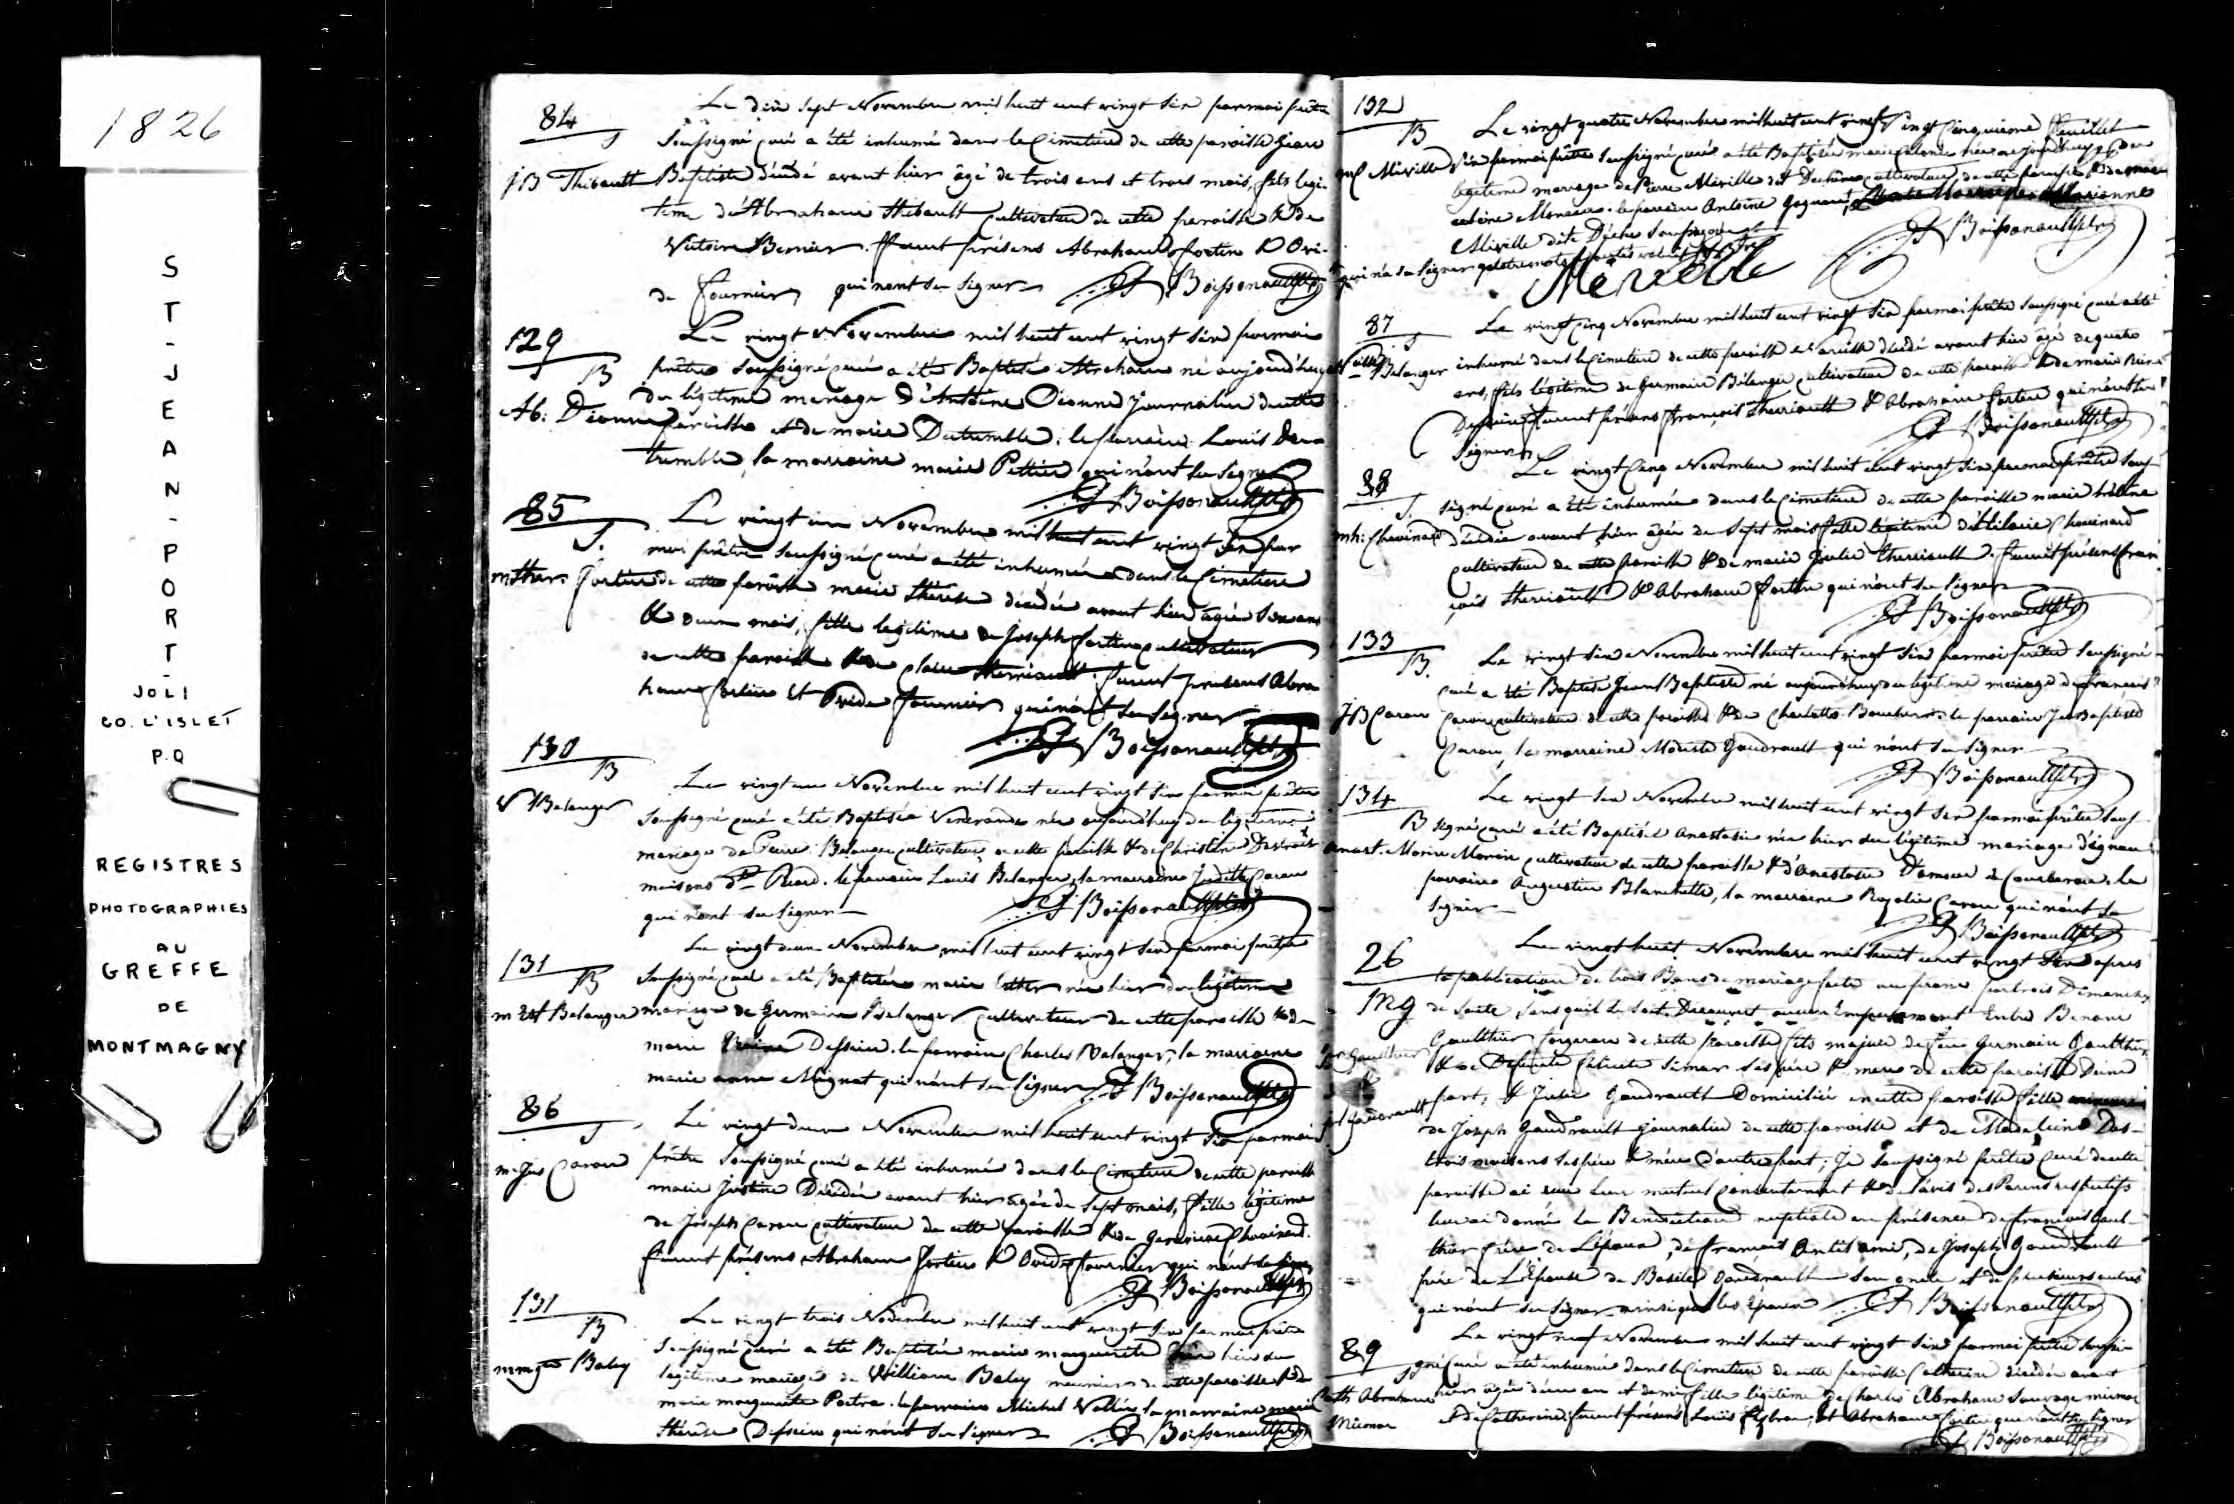 1826
S
T
-
J
E
A
N
-
P
O
R
T
-
JOLI
CO. L'ISLET
P.Q
REGISTRES
PHOTOGRAPHIES
AU
GREFFE
DE
MONTMAGNY
84
S
JB Thibault
Le dix sept Novembre mil huit cent vingt six par moi prêtre
soussigné curé a été inhumé dans le Cimetiere de cette paroisse Jean
Baptiste décédé avant hier âgé de trois ans et trois mois, fils legi-
time d'Abraham Thibault cultivateur de cette paroisse & de
Victoire Bernier. Furent présens Abraham Fortin & Ovi-
de Fournier qui n'ont su signer
Boissonault ptre
129
B
Ab: Dionne
Le vingt Novembre mil huit cent vingt six par moi
prêtre soussigné curé a été Baptisé Abraham né aujourd'huy
du légitime mariage d'Antoine Dionne journalier de cette
paroisse et de marie Dutremble. le parrain Louis Du-
tremble, la marraine marie Pettier qui n'ont su signer
Boissonault ptre
85
S.
m Ther. Fortin
Le vingt un Novembre mil huit cent vingt six par
moi prêtre soussigné curé a été inhumée dans le Cimetiere
de cette paroisse marie Therese décédée avant hier âgée
& deux mois, fille legitime de Joseph Fortin cultivateur
de cette paroisse & de Claire Therriault. furent présens Abra
ham Fortin Et Ovide Fournier qui n'ont su signer
Boissonault ptre
130
B
V Belanger
Le vingt un Novembre mil huit cent vingt six par moi prêtre
soussigné curé a été Baptisée Venerande née aujourd'huy du légitime
mariage de Pierre Belanger cultivateur de cette paroisse & de Christine Destrois
maisons dit Picard. le parrain Louis Belanger, la marraine Judith Caron
qui n'ont su signer
Boissonault ptre
131
B
m Est Belanger
Le vingt deux Novembre mil huit cent vingt six par moi prêtre
soussigné curé a été Baptisée marie Esther née hier du légitime
mariage de Germain Belanger cultivateur de cette paroisse & de
marie Dessein. le parrain Charles Belanger, la marraine
marie anne Mignot qui n'ont su signer Boissonault ptre
86
S
m. Jus Caron
Le vingt deux Novembre mil huit cent vingt six par moi
prêtre soussigné curé a été inhumée dans le Cimetiere de cette paroisse
marie Justine Décédée avant hier âgée de sept mois, fille légitime
de Joseph Caron cultivateur de cette paroisse & de Genevieve Chouinard.
furent présens Abraham Fortin & Ovide Fournier qui n'ont su signer
Boissonault ptre
131
B
m mgte Baley
Le vingt trois Novembre mil huit cent vingt six par moi prêtre
soussigné curé a été Baptisée marie marguerite née hier du
legitime mariage de William Baley meunier de cette paroisse & de
marie marguerite Poitra. le parrain Michel Vallée la marraine marie
thérèse Dessein qui n'ont su signer Boissonault ptre
132
B
Miville
Le vingt quatre Novembre mil huit cent vingt Vingt Cinquieme feuillet
six par moi prêtre soussigné curé a été Baptisée née aujourd'huy du
legitime mariage de Pierre Miville dit Dechêne cultivateur de cette paroisse & de
Morneau. le parrain Antoine Gagnon, Marianne
Miville dite Dechêne soussignée
qui n'a su signer
Boissonault ptre
Merville
87
S
Narcisse Belanger
Le vingt cinq Novembre mil huit cent vingt six par moi prêtre soussigné curé a été
inhumé dans le Cimetiere de cette paroisse Narcisse décédé avant hier âgé de quatre
ans, fils légitime de Germain Bélanger cultivateur de cette paroisse & de marie
Dessein. furent présens François Therriault & Abraham Fortin qui n'ont su
signer
Boissonault ptre
88
S.
m h: Chouinard
Le vingt Cinq Novembre mil huit cent vingt six par moi prêtre sous-
signé curé a été inhumée dans le Cimetiere de cette paroisse marie
décédée avant hier âgée de sept mois fille légitime d'Hilaire Chouinard
cultivateur de cette paroisse & de marie Julie Therriault. furent présens fran-
çois Therriault & Abraham Fortin qui n'ont su signer
Boissonault ptre
133
B.
JB Caron
Le vingt six Novembre mil huit cent vingt six par moi prêtre soussigné
curé a été Baptisé Jean Baptiste né aujourd'huy du légitime mariage de François
Caron cultivateur de cette paroisse & de Charlotte Boucher. le parrain Jn Baptiste
Caron, la marraine Gaudrault qui n'ont su signer
Boissonault ptre
134
B
Anast. Morin
Le vingt six Novembre mil huit cent vingt six par moi prêtre sous-
signé curé a été Baptisée Anastasie née hier du légitime mariage d'Ignace
Morin cultivateur de cette paroisse & d'Anastasie D'amour de Courberon. le
parrain Augustin Blanchette, la marraine Rosalie Caron qui n'ont su
signer
Boissonault ptre
26
Mg
Gaulthier
&
Gaudrault
Le vingt huit Novembre mil huit cent vingt six apres
la publication de trois Bans de mariage faite au prone par trois Dimanches
de suite, sans qu'il se soit Découvert aucun Empechement Entre Benoni
Gaulthier forgeron de cette paroisse fils majeur de feu Germain Gaulthier
& de Defunte Felicité Simar ses père & mere de cette paroisse D'une
part; & Julie Gaudrault Domiciliée en cette paroisse fille mineure
de Joseph Gaudrault journalier de cette paroisse et de Madeleine Des-
trois maisons ses père & mère d'autre part; Je soussigné prêtre curé de cette
paroisse ai reçu leur mutuel consentement & de l'avis des Parens respectifs
leur ai donné la Benediction nuptiale en présence de françois Gaul-
thier frère de L'époux, de françois ami, de Joseph Gaudrault
frère de L'Epouse de Basile Gaudrault son oncle et de plusieurs autres
qui n'ont su signer ainsi que les époux Boissonault ptre
89
S
Cath Abraham
Micmac
Le vingt neuf Novembre mil huit cent vingt six par moi prêtre soussi-
gné curé a été inhumée dans le Cimetiere de cette paroisse Catherine décédée avant
hier âgée d'un an et demi fille légitime de Charles Abraham Sauvage micmac
& de Catherine. furent présens Louis et Abraham Fortin qui n'ont su signer
Boissonault ptre